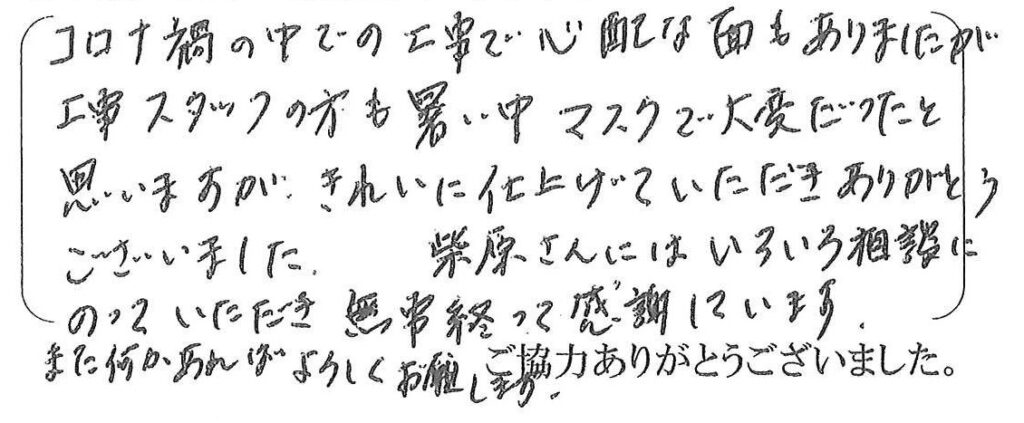 コロナ禍の中での工事で心配な面もありましたが
工事スタッフの方も暑い中マスクで大変だったと
思いますが、きれいに仕上げていただきありがとう
ございました。 柴原さんにはいろいろ相談に
のっていただき無常終って感謝しています。
また何かあればよろしくお願いします。
ご協力ありがとうございました。